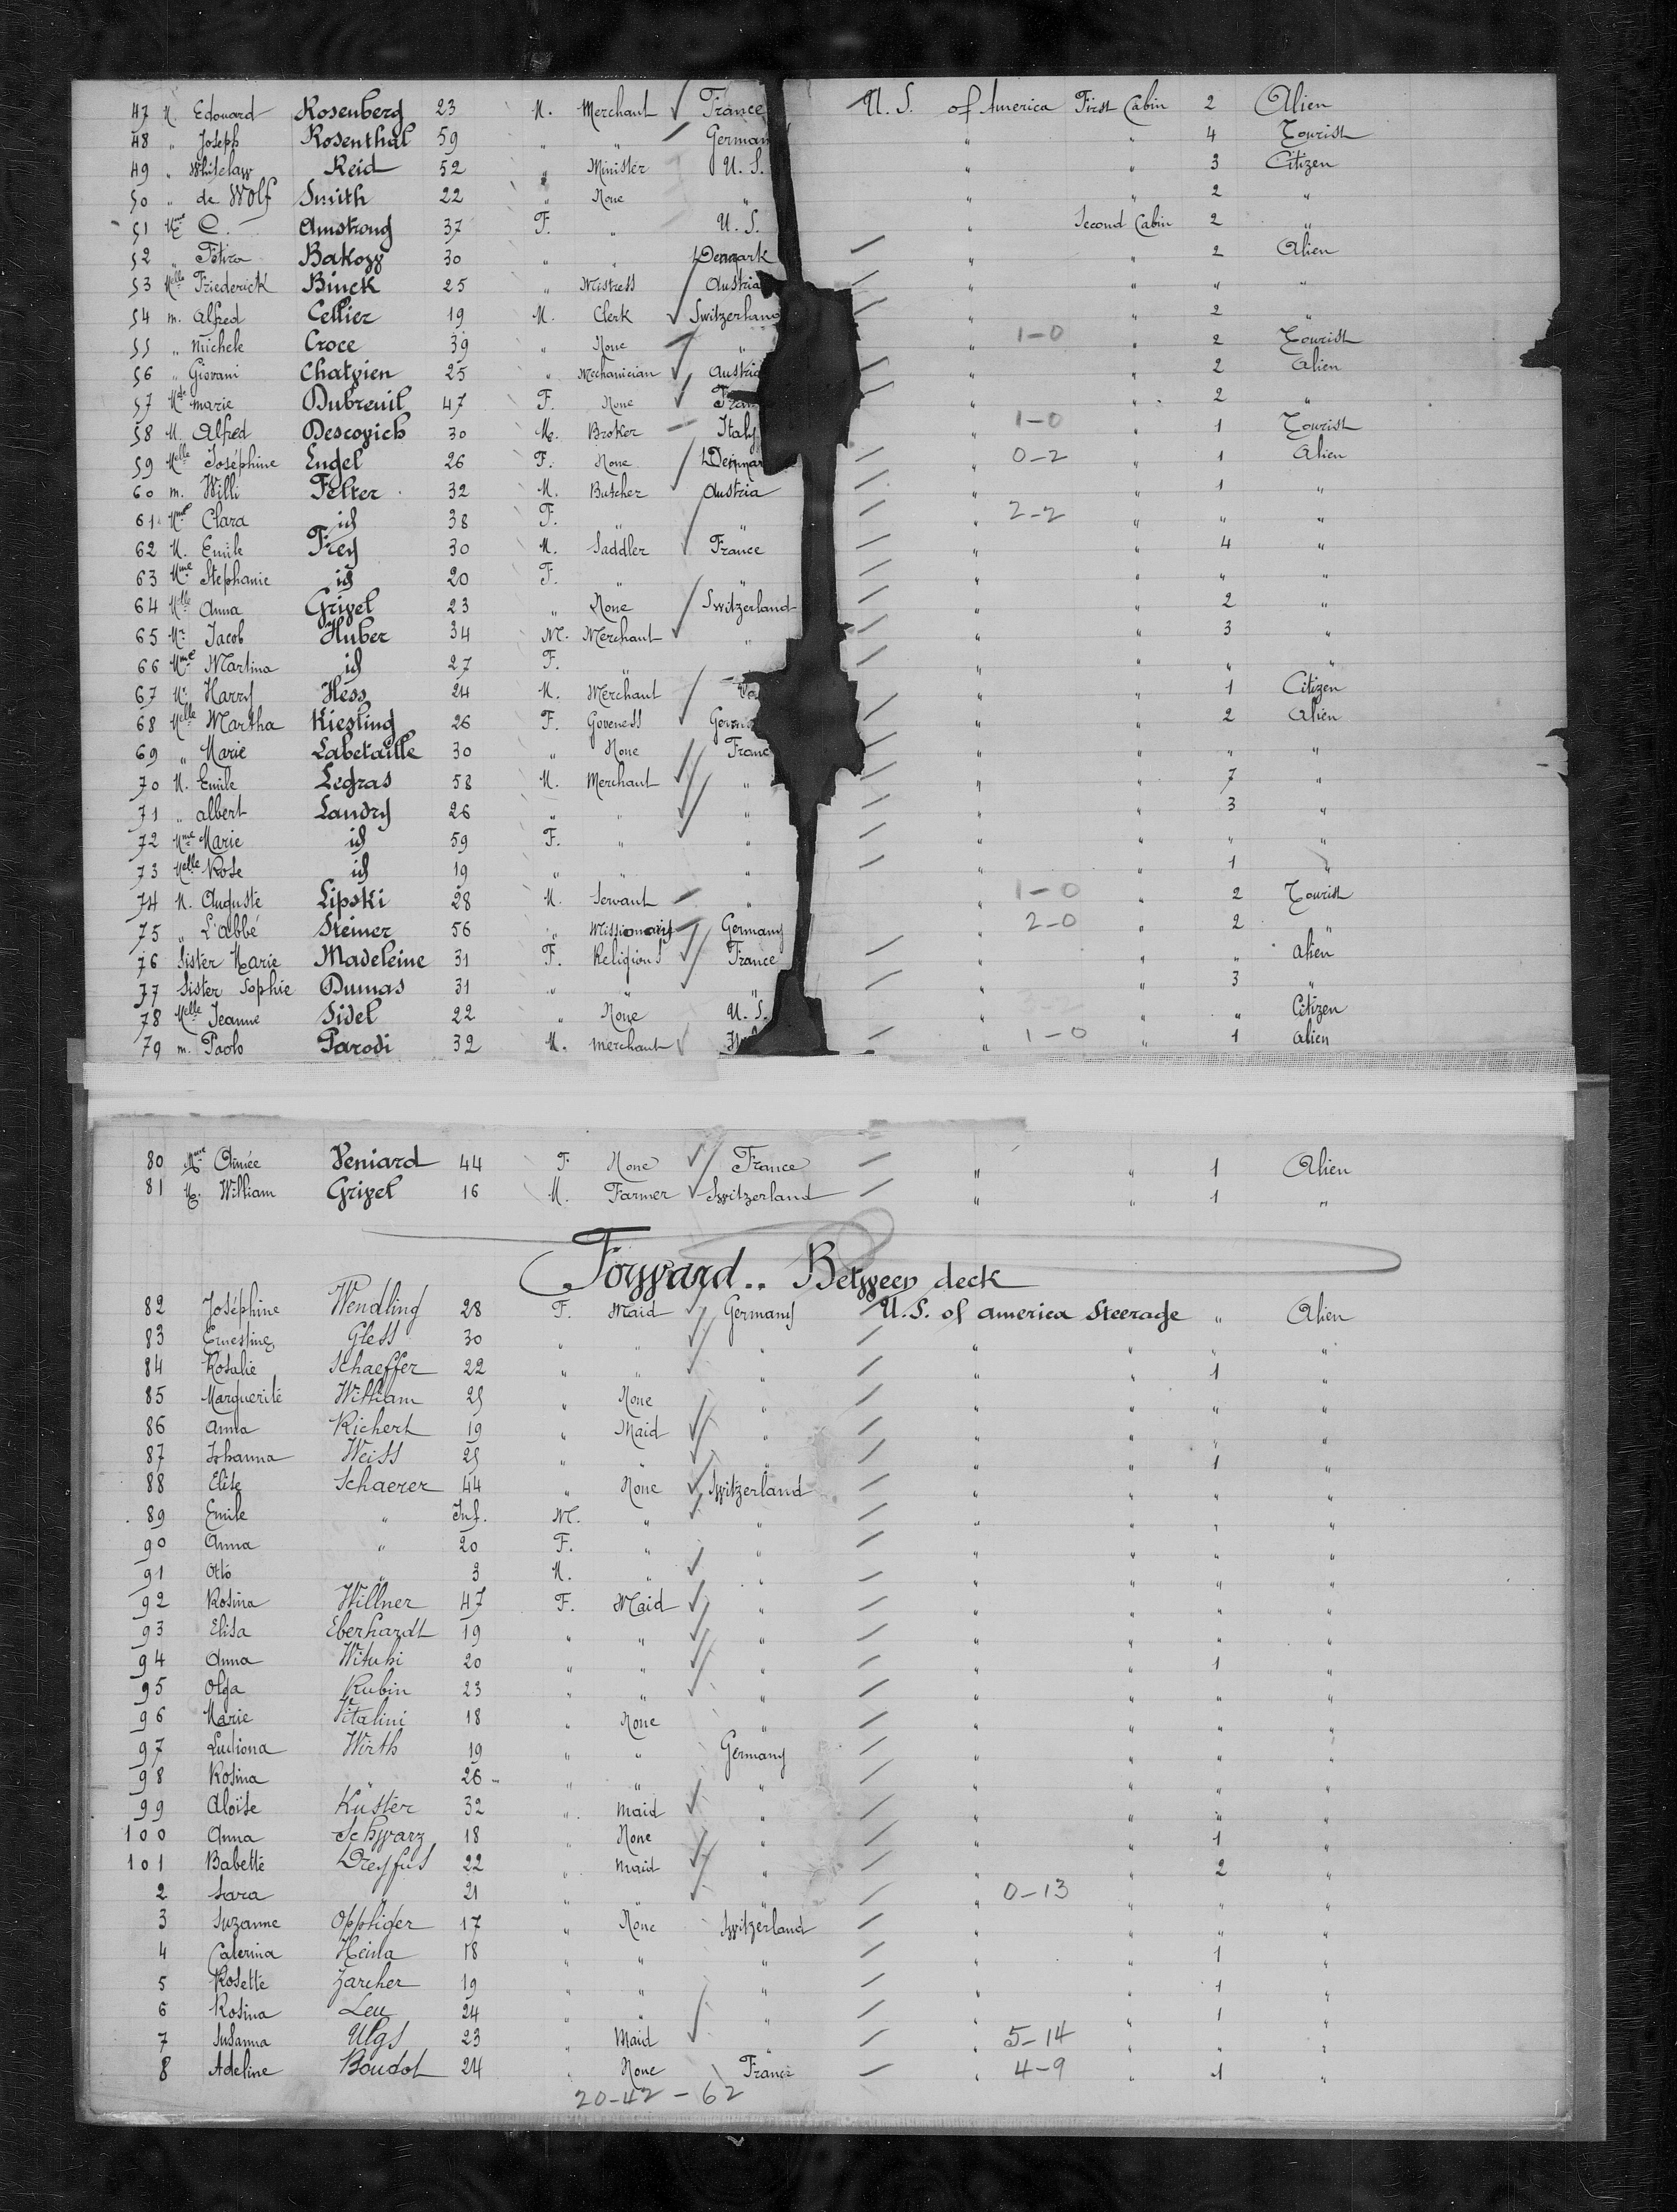 47 M. Edouard Rosenberg 23 M. Merchant France U.S. of America First Cabin 2 Alien
48 " Joseph Rosenthal 59 " " German " " 4 Tourist
49 " Whitelaw Reid 52 " Minister U.S. " " 3 Citizen
50 " de Wolf Smith 22 " None " " " 2 "
51 Mme C. Amstrong 37 F. " U.S. " Second Cabin 2 "
52 " Pétra Bakow 30 " " Denmark " " 2 Alien
53 Melle Friederick Binck 25 " Mistress Austria " " " "
54 m. Alfred Cellier 19 M. Clerk Switzerland " " 2 "
55 " Michele Croce 39 " None " " 1-0 " 2 Tourist
56 " Giovani Chatvien 25 " Mechanician Austria " " 2 Alien
57 Mde Marie Dubreuil 47 F. None Fran " " 2 "
58 M. Alfred Descovich 30 M. Broker Italy " 1-0 " 1 Tourist
59 Melle Joséphine Engel 26 F. None Denmar " 0-2 " 1 Alien
60 m. Willi Felter 32 M. Butcher Austria " " 1 "
61 Mme Clara id 38 F. " " " 2-2 " " "
62 M. Emile Frey 30 M. Saddler France " " 4 "
63 Mme Stephanie id 20 F. " " " " " "
64 Melle Anna Grivel 23 " None Switzerland " " 2 "
65 Mr. Jacob Huber 34 M. Merchant " " " 3 "
66 Mme Martina id 27 F. " " " " "
67 Mr. Harry Hess 24 M. Merchant " " 1 Citizen
68 Melle Martha Kiesling 26 F. Goveness " " 2 Alien
69 " Marie Labetaille 30 " None Franc " " " "
70 M. Emile Legras 58 M. Merchant " " " 7 "
71 " Albert Landry 26 " " " " " 3 "
72 Mme Marie id 59 F. " " " " " "
73 Melle Rose id 19 " " " " " 1 "
74 M. Auguste Lipski 28 M. Servant " " 1-0 " 2 Tourist
75 " L'abbé Steiner 56 " Missionary Germany " 2-0 " 2 "
76 Sister Marie Madeleine 31 F. Religious France " " " Alien
77 Sister Sophie Dumas 31 " " " " " 3 "
78 Melle Jeanne Sidel 22 " None U.S. " " " Citizen
79 m. Paolo Parodi 32 M. Merchant " 1-0 " 1 Alien
80 Mme Aimée Veniard 44 F. None France " " 1 Alien
81 M. William Grivel 16 M. Farmer Switzerland " " 1 "
Forward.. Between deck
82 Joséphine Wendling 28 F. Maid Germany U.S. of america Steerage " Alien
83 Ernestine Gless 30 " " " " " " "
84 Rosalie Schaeffer 22 " " " " " 1 "
85 Marguerite William 25 " None " " " " "
86 Anna Richert 19 " Maid " " " " "
87 Johanna Weiss 25 " " " " " 1 "
88 Elise Schaerer 44 " None Switzerland " " " "
89 Emile " Inf. M. " " " " " "
90 Anna " 20 F. " " " " " "
91 Otto " 3 M. " " " " " "
92 Rosina Willner 47 F. Maid " " " " "
93 Elisa Eberhardt 19 " " " " " " "
94 Anna Wituhi 20 " " " " " 1 "
95 Olga Rubin 23 " " " " " " "
96 Marie Vitalini 18 " None " " " " "
97 Ludiona Wirth 19 " " Germany " " " "
98 Rosina " 26 " " " " " " "
99 Aloïse Küster 32 " Maid " " " " "
100 Anna Schwarz 18 " None " " " 1 "
101 Babette Dreyfus 22 " Maid " " " 2 "
2 Sara " 21 " " " " 0-13 " " "
3 Suzanne Oppliger 17 " None Switzerland " " " "
4 Caterina Heinla 18 " " " " " 1 "
5 Rosette Zarcher 19 " " " " " 1 "
6 Rosina Leu 24 " " " " " 1 "
7 Susanna Ulgs 23 " Maid " 5-14 " " "
8 Adeline Boudot 24 " None France " 4-9 " 1 "
20-42-62